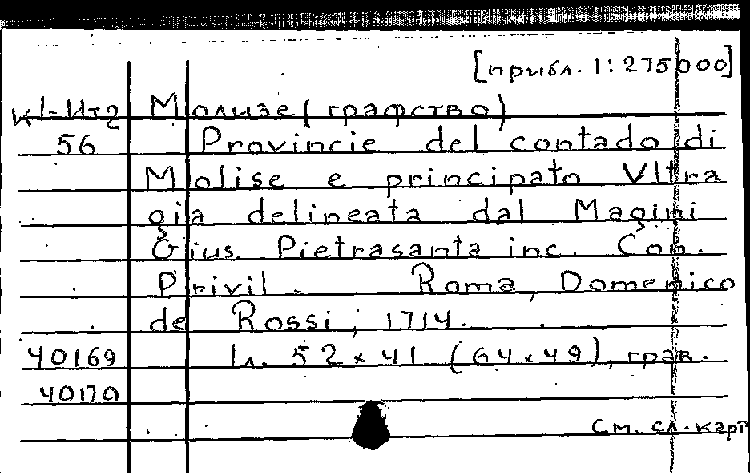 [прибл. 1:275000]
К1-Ит2 Молизе (графство)
56 Provincie del contado di
Molise e principato Vltra
gia delineata dal Magini
Gius. Pietrasanta inc. Con.
Privil. Roma, Domenico
de Rossi, 1714.
40169 1 л. 52×41 (64×49), грав.
40170
См. сл. карт